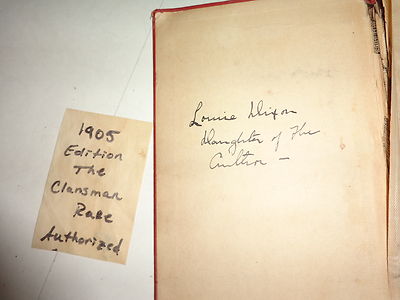 1905
Edition
The
Clansman
Rare
Authorized
Louise Dixon
Daughter of the
Author —